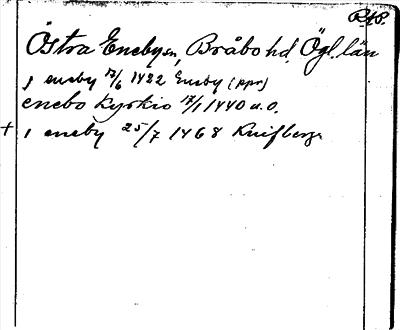 R48.
Östra Eneby sn, Bråbo hd. Ögl. län
j eneby 17/6 1422 Eneby (ppr)
enebo kyrkio 17/1 1440 u.o.
+ i eneby 25/7 1468 Knifberga